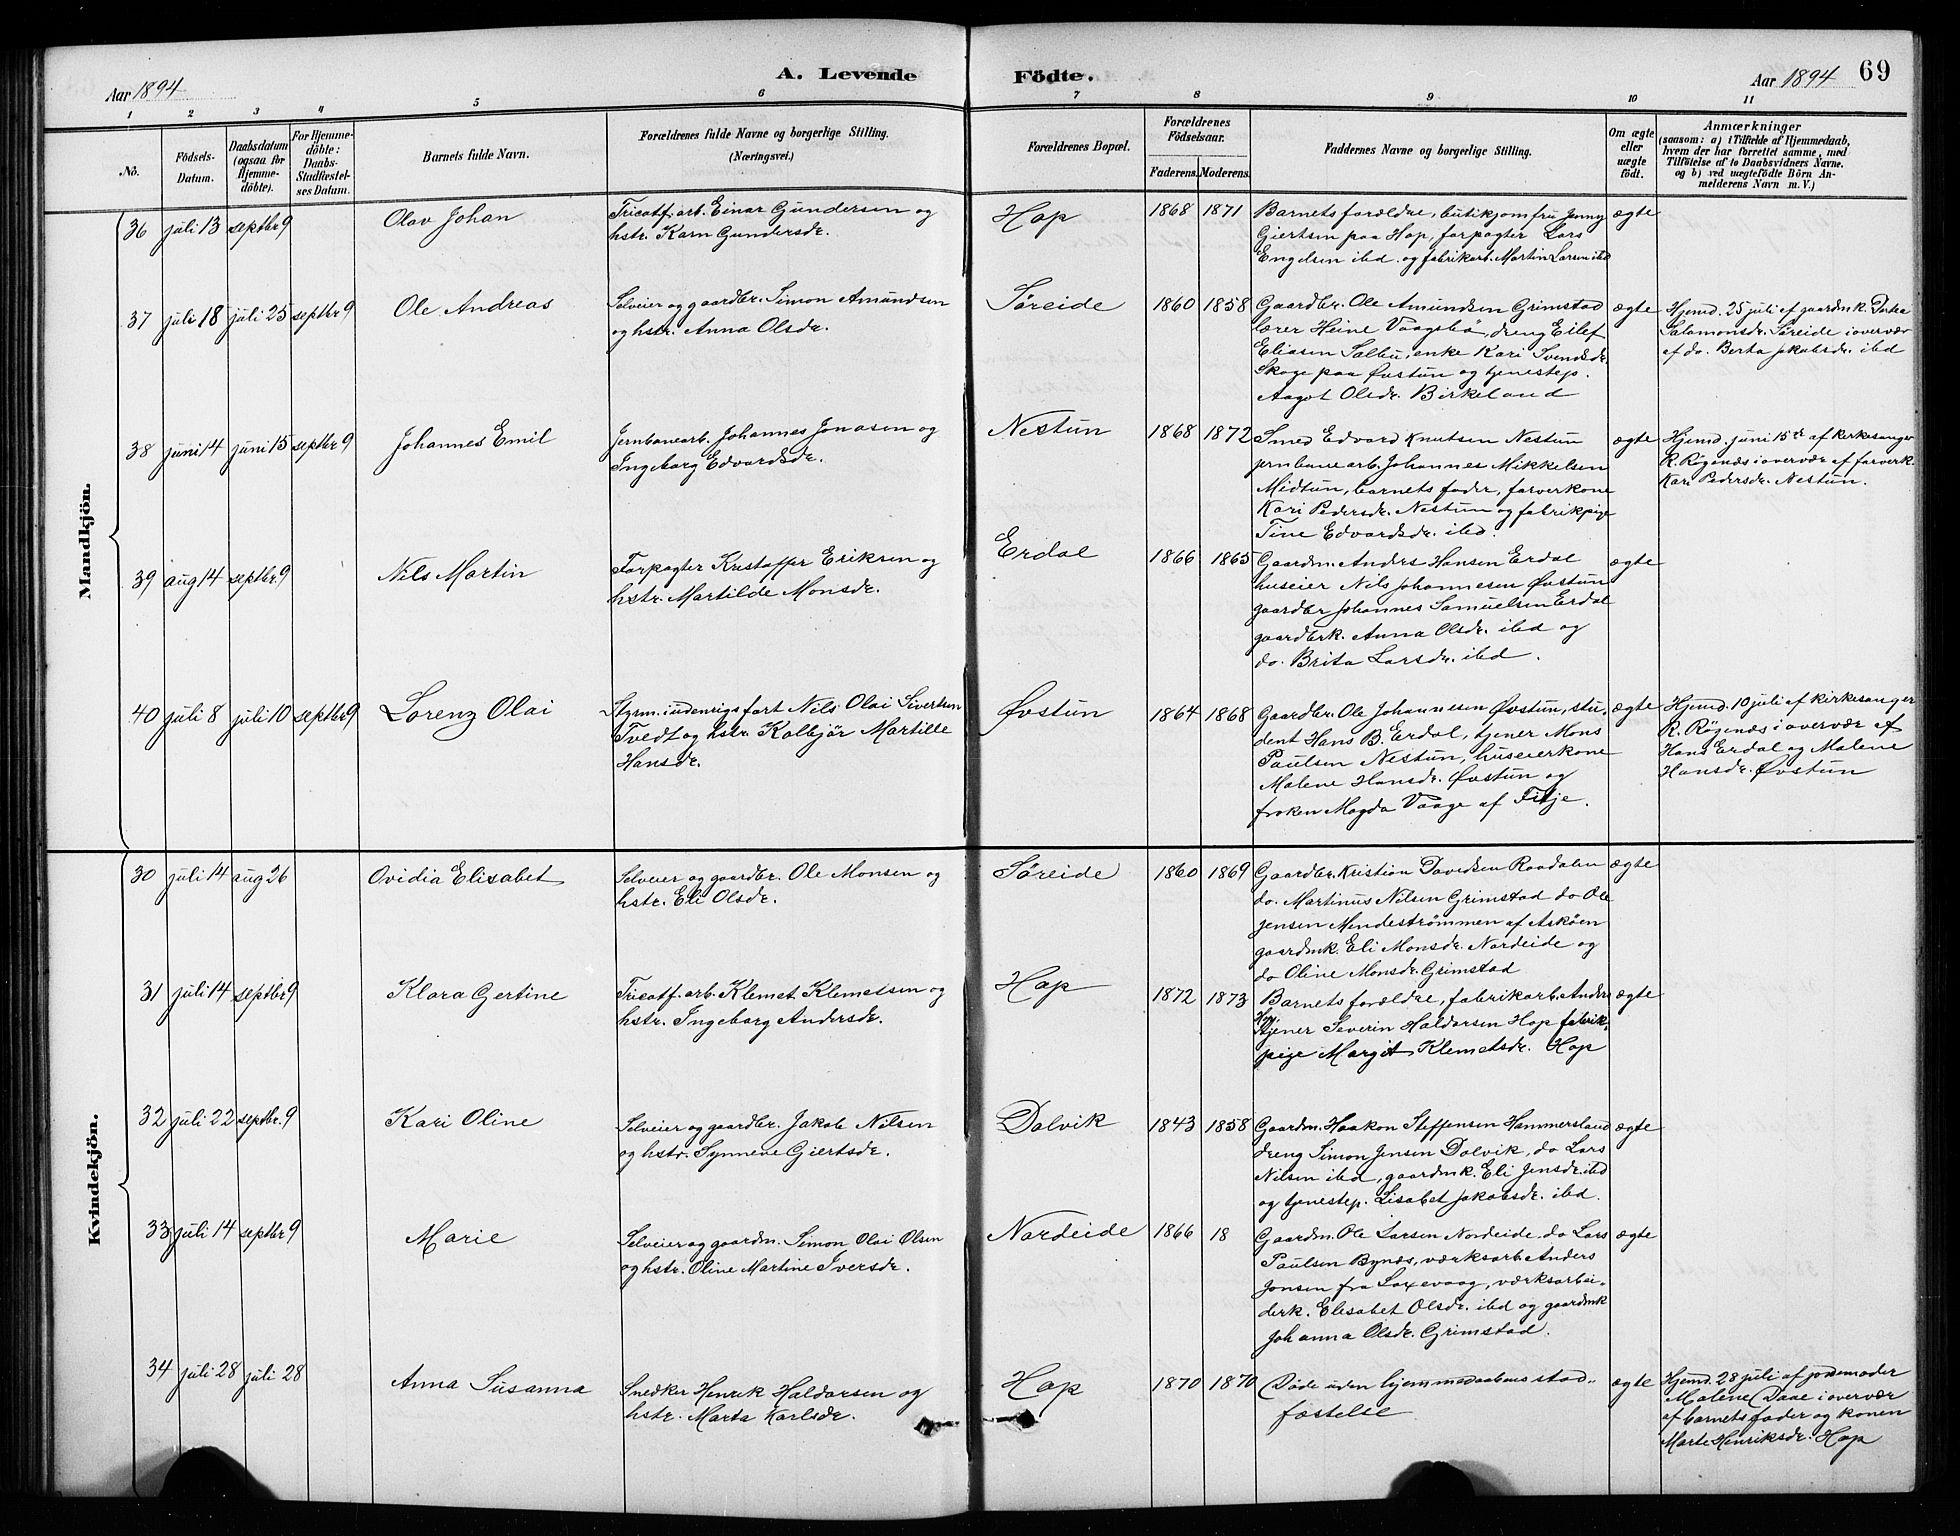 Aar 1894
A. Levende
Födte.
Aar 1894
69
1 2 3 4 5 6 7 8 9 10 11
No.
Födsels-
Datum.
Daabsdatum
(ogsaa for
Hjemme-
döbte).
For Hjemme-
döbte:
Daabs-
Stadfæstel-
ses Datum.
Barnets fulde Navn.
Forældrenes fulde Navne og borgerlige Stilling.
(Næringsvei.)
Forældrenes Bopæl.
Forældrenes
Födselsaar.
Faderens. Moderens.
Faddernes Navne og borgerlige Stilling.
Om ægte
eller
uægte
födt.
Anmærkninger
(saasom: a) i Tilfælde af Hjemmedaab,
hvem der har forrettet samme, med
Tilföielse af to Daabsvidners Navne.
og b) ved uægtefödte Börn An-
melderens Navn m. V.)
Mandkjön.
36 juli 13 septbr 9
Olav Johan
Tricotf. arb. Einar Gundersen og
hstr. Karn Gundersdr.
Hop
1868 1871
Barnets forældre, butikjomfru Jenny
Giertsen paa Hop, forpagter Lars
Engelsen ibd. og fabrikarb. Martin Larsen ibd
ægte
37 juli 18 juli 25 septbr 9
Ole Andreas
Selveier og gaardbr. Simon Amundsen
og hstr. Anna Olsdr.
Søreide
1860 1858
Gaardbr. Ole Amundsen Grimstad
lærer Heine Vaagsbø, dreng Eilef
Eliasen Sælbu, enke Kari Svendsdr.
Skage paa Øvstun og tjenestep.
Aagot Olsdr. Birkeland
ægte
Hjemd. 25 juli af gaardmk.
Salamonsdr. Søreide i overvær
af do. Berta Jakobsdr. ibd
38 juni 14 juni 15 septbr 9
Johannes Emil
Jernbanearb. Johannes Jonasen og
Ingeborg Edvardsdr.
Nestun
1868 1872
Smed Edvard Knutsen Nestun
jernbanearb. Johannes Mikkelsen
Midtun, barnets fader, farverkone
Kari Pedersdr. Nestun og fabrikpige
Tine Edvardsdr. ibd.
ægte
Hjemd. juni 15de af kirkesanger
R. Røgenæs i overvær af farverk.
Kari Pedersdr. Nestun.
39 aug 14 septbr 9
Nils Martin
Forpagter Kristoffer Eriksen og
hstr. Martilde Monsdr.
Erdal
1866 1865
Gaardm. Anders Hansen Erdal
huseier Nils Johannesen Øvstun
gaardbr Johannes Samuelsen Erdal
gaardbrk. Anna Olsdr. ibd og
do. Brita Larsdr. ibd.
ægte
40 juli 8 juli 10 septbr 9
Lorenz Olai
Styrm. i udenrigsfart Nils Olai Sivertsen
Tvedt og hstr. Kolbjör Martille
Hansdr.
Øvstun
1864 1868
Gaardbr. Ole Johannesen Øvstun, stu-
dent Hans B. Erdal, tjener Mons
Paulsen Nestun, huseierkone
Malene Hansdr. Øvstun og
frøken Magda Vaage af Fitje.
ægte
Hjemd. 10 juli af kirkesanger
R. Røgenæs i overvær af
Hans Erdal og Malene
Hansdr. Øvstun
Kvindekjön.
30 juli 14 aug 26
Ovidia Elisabet
Selveier og gaardbr. Ole Monsen og
hstr. Eli Olsdr.
Søreide
1860 1869
Gaardbr. Kristian Davidsen Raadalen
do. Martinus Nilsen Grimstad do Ole
Jensen Mindeströmmen af Askøen
gaardmk. Eli Monsdr. Nordeide og
do Oline Monsdr. Grimstad
ægte
31 juli 14 septbr 9
Klara Gertine
Tricotf. arb. Klemet Klemetsen og
hstr. Ingeborg Andersdr.
Hop
1872 1873
Barnets forældre, fabrikarb. Anders
Hop,
tjener Severin Haldorsen Hop fabrik-
pige Margit Klemetsdr. Hop
ægte
32 juli 22 septbr. 9
Kari Oline
Selveier og gaardbr. Jakob Nilsen
og hstr. Synneve Giertsdr.
Dolvik
1843 1858
Gaardm. Haakon Steffensen Hammersland
dreng Simon Jensen Dolvik, do Lars
Nilsen ibd, gaardmk. Eli Jensdr. ibd
og tjenestep. Lisabet Jakobsdr. ibd.
ægte
33 juli 14 septbr 9
Marie
Selveier og gaardm. Simon Olai Olsen
og hstr. Oline Martine Iversdr.
Nordeide
1866 18
Gaardm. Ole Larsen Nordeide do Lars
Paulsen Bynæs, værksarb. Anders
Jonsen fra Laxevaag, værksarbei-
derk. Elisabet Olsdr. ibd og gaardmk
Johanna Olsdr. Grimstad.
ægte
34 juli 28 juli 28
Anna Susanna
Snedker Henrik Haldorsen og
hstr. Marta Karlsdr.
Hop
1870 1870
Døde uden hjemmedaabens stad-
fæstelse
ægte
Hjemd. 28 juli af jordemoder
Malene Daae i overvær
af barnets fader og konen
Marte Henriksdr. Hop